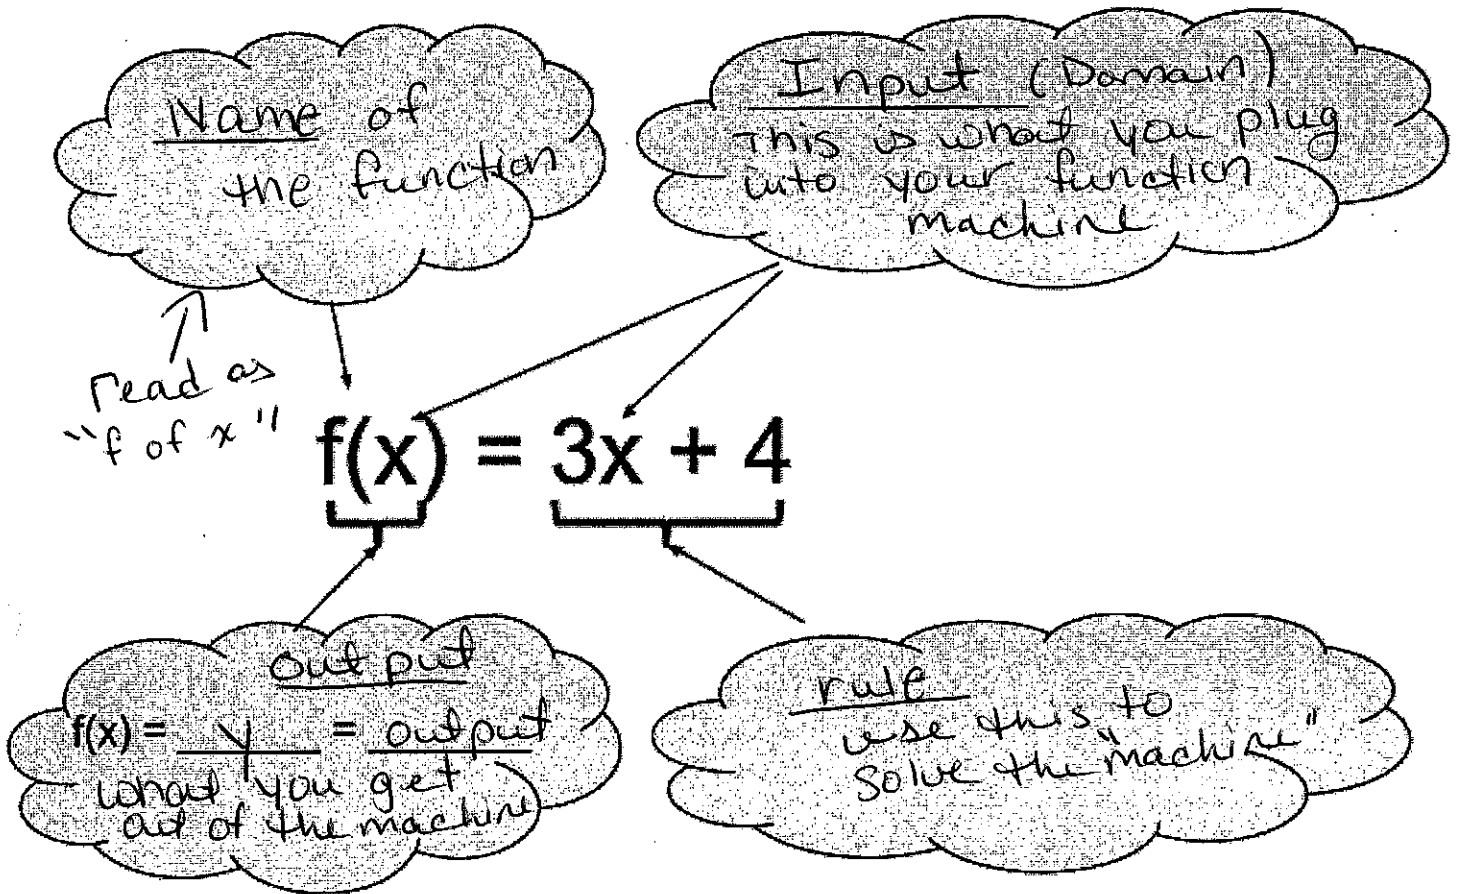 Name of
the function
Input (Domain)
This is what you plug
into your function
machine
read as
"f of x"
f(x) = 3x + 4
output
f(x) = y = output
what you get
out of the machine
rule
use this to
solve the "machine"